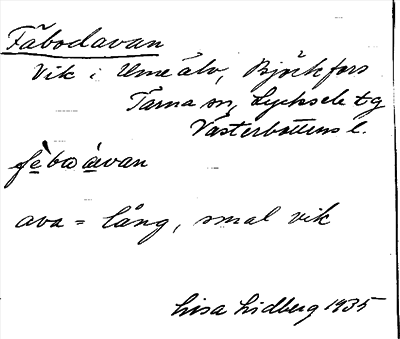 Fäbodavan
Vik i Umeälv, Björkfors
Tärna sn, Lycksele tg
Västerbottens l.
fèba ávan
ava = lång, smal vik
Lisa Lidberg 1935